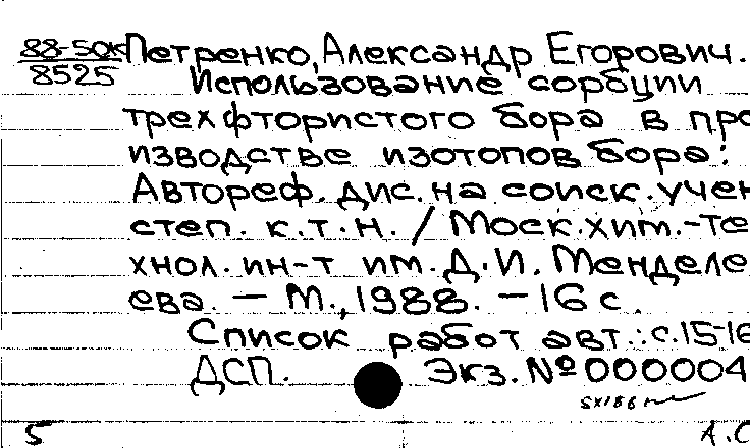 88-50к Петренко, Александр Егорович.
8525
Использование сорбции
трехфтористого бора в про
изводстве изотопов бора:
Автореф. дис. на соиск. учен
степ. к.т.н. / Моск. хим.-те
хнол. ин-т им. Д.И. Менделе
ева. — М., 1988. — 16 с.
Список работ авт.: с.15-16
ДСП. Экз. № 0000004
5 А.С